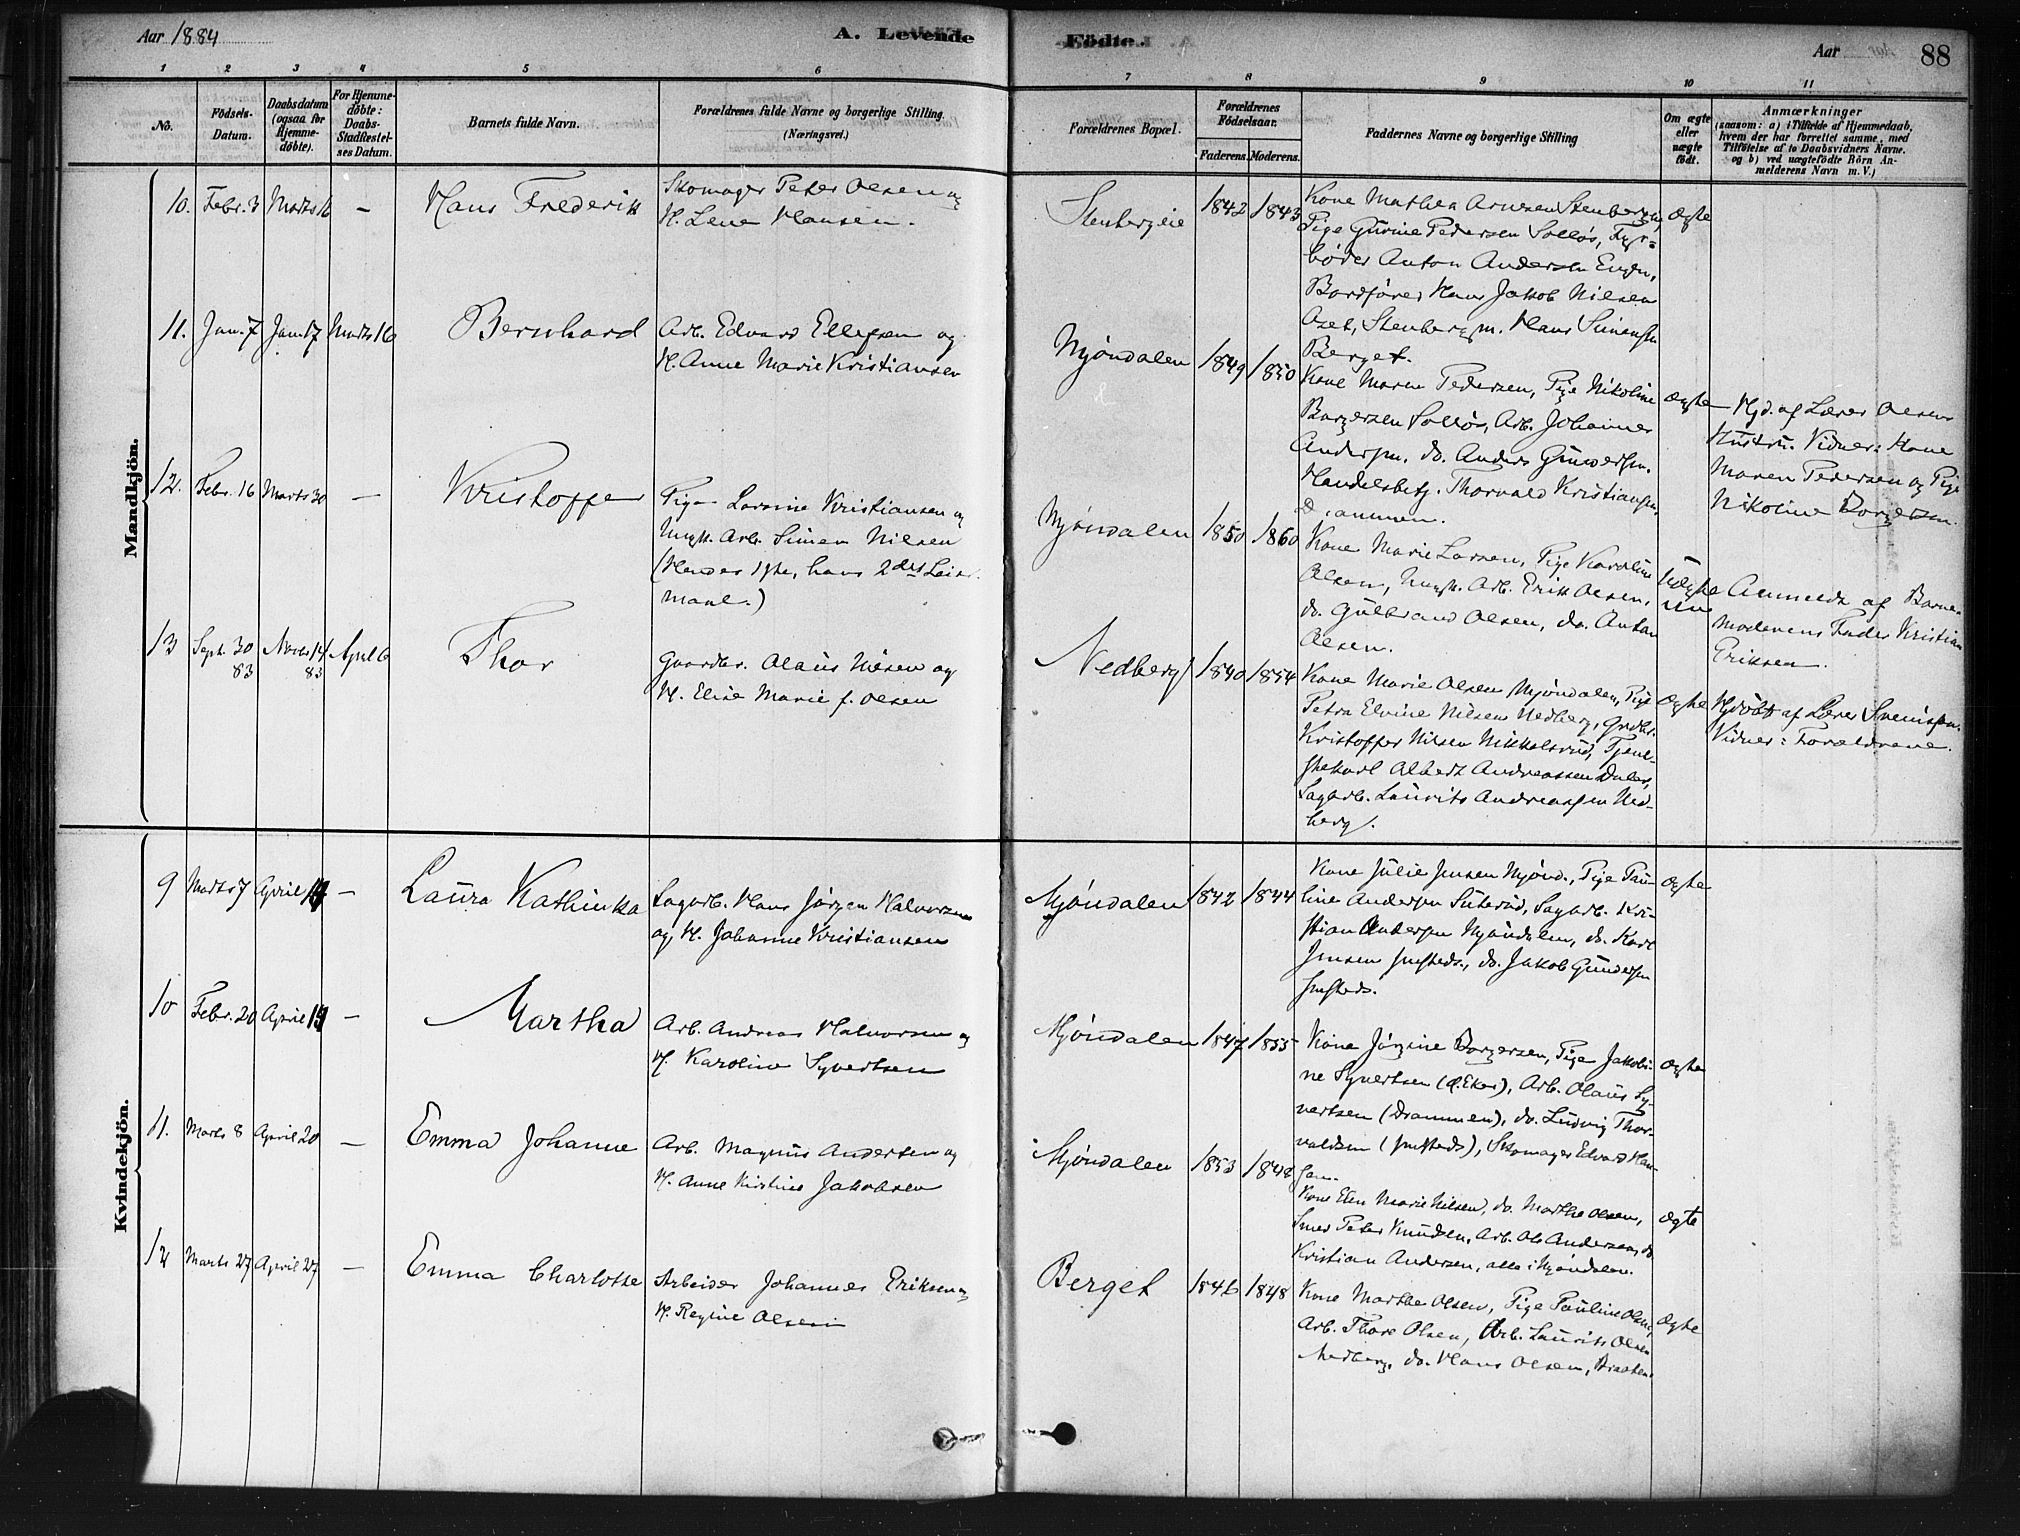 Aar 1884
A. Levende
Födte.
Aar
88
1 2 3 4 5 6 7 8 9 10 11
No.
Födsels-
Datum.
Daabsdatum
(ogsaa for
Hjemme-
döbte).
For Hjemme-
döbte:
Daabs-
Stadfæstel-
ses Datum.
Barnets fulde Navn.
Forældrenes fulde Navne og borgerlige Stilling
(Næringsvei.)
Forældrenes Bopæl.
Forældrenes
Födselsaar.
Faderens. Moderens.
Faddernes Navne og borgerlige Stilling
Om ægte
eller
uægte
født.
Anmærkninger
(saasom: a) i Tilfælde af Hjemmedaab,
hvem der har forrettet samme, med
Tilföielse af to Daabsvidners Navne.
og b) ved uægtefödte Börn An-
melderens Navn m.V.)
Mandkjön.
10. Febr. 3 Marts 16 — Hans Frederik
Skomager Peter Olsen og
H. Lene Hansen.
Stenbergeie 1842 1843
Kone Mathea Arnesen Stenbergeie,
Pige Gurine Pedersen Solløs, Fyr-
bøder Anton Andersen Engen,
Bordfører Hans Jakob Nilsen
Aset, Stenberg m. Hans Simensen
Berget.
Ægte
11. Jan. 7 Jan. 17 Marts 16 Bernhard
Arb. Edvard Ellefsen og
H. Anne Marie Kristiansen
Mjøndalen 1849 1850
Kone Maren Pedersen, Pige Nikoline
Borgersen Solløs, Arb. Johannes
Andersen, do. Anders Gundersen,
Handelsbetj. Thorvald Kristiansen,
Drammen.
Ægte
Hjd. af Lærer Olsens
Hustru. Vidner: Kone
Maren Pedersen og Pige
Nikoline Borgersen.
12. Febr. 16 Marts 30 — Kristoffer
Pige Lovine Kristiansen og
Ungk. Arb. Simen Nilsen
(Hendes 1ste, hans 2det Leier-
maal.)
Mjøndalen 1850 1860
Kone Marie Larsen, Pige Karoline
Olsen, Ungk. Arb. Erik Olsen,
do. Gulbrand Olsen, do. Anton
Olsen.
Uægte
Anmeldt af Barne-
moderens Fader Kristian
Eriksen.
13 Sept. 30 83 Novbr 14 83 April 6 Thor
Gaardbr. Olaus Nilsen og
H. Elise Marie f. Olsen
Nedberg 1840 1854
Kone Marie Olsen Mjøndalen, Pige
Petra Elvine Nilsen Nedberg, Grdbr.
Kristoffer Nilsen Nikkelsrud, Tjene-
stekarl Albert Andreassen Daler,
Sagarb. Laurits Andreassen Ned-
berg.
Ægte
Hjdöbt af Lærer Svendsen.
Vidner: Forældrene.
Kvindekjön.
9 Marts 7 April 14 — Laura Kathinka
Sagarb. Hans Jørgen Halvorsen
og H. Johanne Kristiansen
Mjøndalen 1842 1844
Kone Julie Jensen Mjønd., Pige Pau-
line Andersen Suterud, Sagarb. Kri-
stian Andersen Mjøndalen, do. Karl
Jensen smsteds., do. Jakob Gundersen
smsteds.
Ægte
10 Febr. 20 April 14 — Martha
Arb. Andreas Halvorsen og
H. Karoline Syvertsen
Mjøndalen 1847 1855
Kone Jørgine Borgersen, Pige Jakobi-
ne Syvertsen (Ø. Eker), Arb. Olaus Sy-
vertsen (Drammen), do. Ludvig Thor-
valdsen (smsteds), Skomager Edvard Han-
sen.
Ægte
11. Marts 8 April 20 — Emma Johanne
Arb. Magnus Andersen og
H. Anne Kirstine Jakobsen
Mjøndalen 1853 1848
Kone Elen Marie Nilsen, do. Marthe Olsen,
Smed Peter Knudsen, Arb. Ole Andersen, do.
Kristian Andersen, alle i Mjøndalen.
Ægte
12 Marts 27 April 27 — Emma Charlotte
Arbeider Johannes Eriksen og
H. Regine Olsen
Berget 1846 1848
Kone Marthe Olsen, Pige Pauline Olsen,
Arb. Thore Olsen, Arb. Laurits Olsen
Nedberg, do. Hans Olsen, Braaten.
Ægte